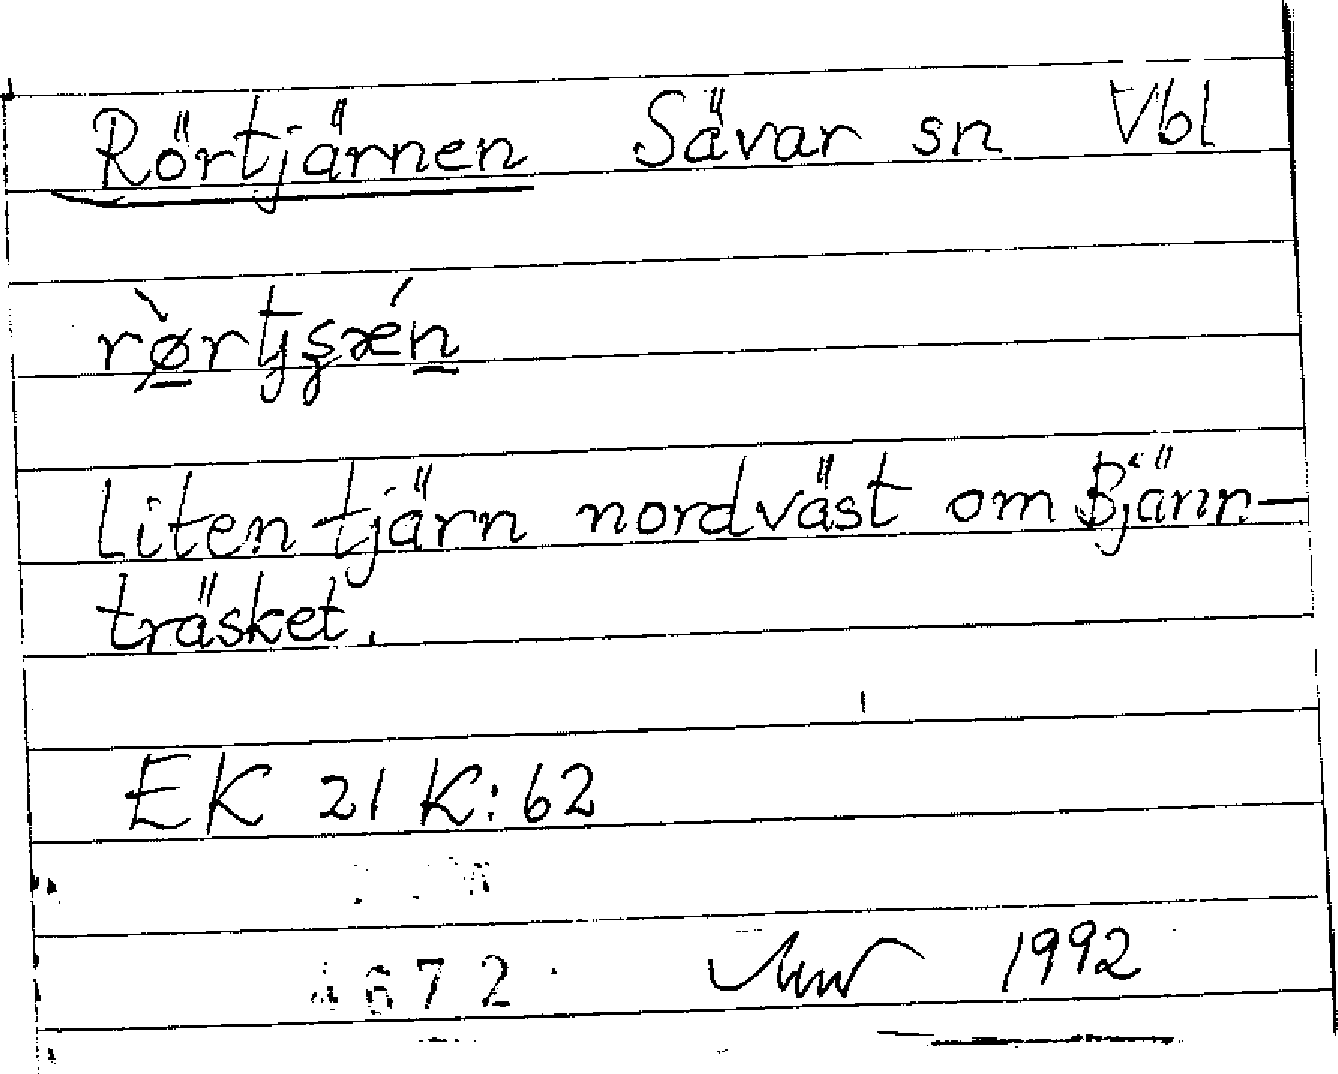 Rörtjärnen Sävar sn Vbl
Liten tjärn nordväst om Bjänn-
träsket.
EK 21 K:62
672
1992